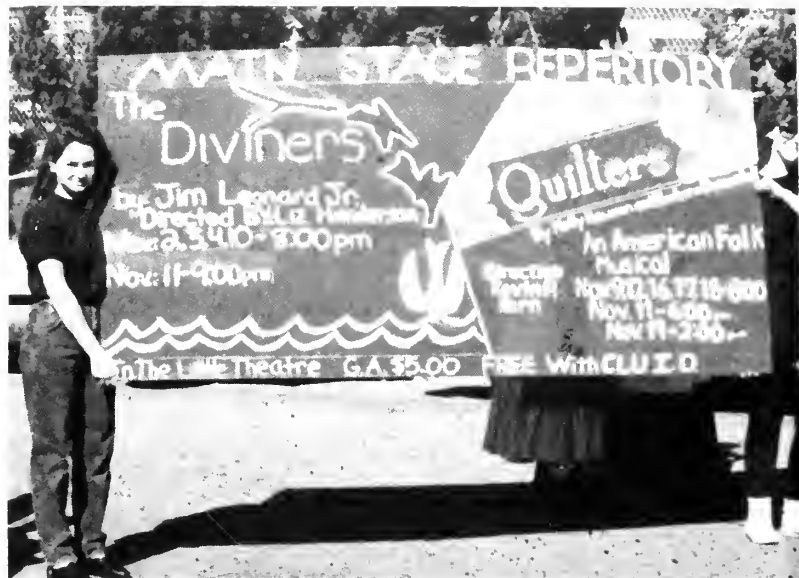 MAIN STAGE REPERTORY
The
Diviners
by Jim Leonard Jr.
Directed By Liz Henderson
Nov. 2,3,4,10-8:00pm
Nov. 11-9:00pm
Quilters
An American Folk
Musical
Directed
Nov. 9,12,16,17,18-8:00
Nov. 11-6:00
Nov. 19-2:00
In The Little Theatre G.A. $5.00 FREE With CLU I.D.